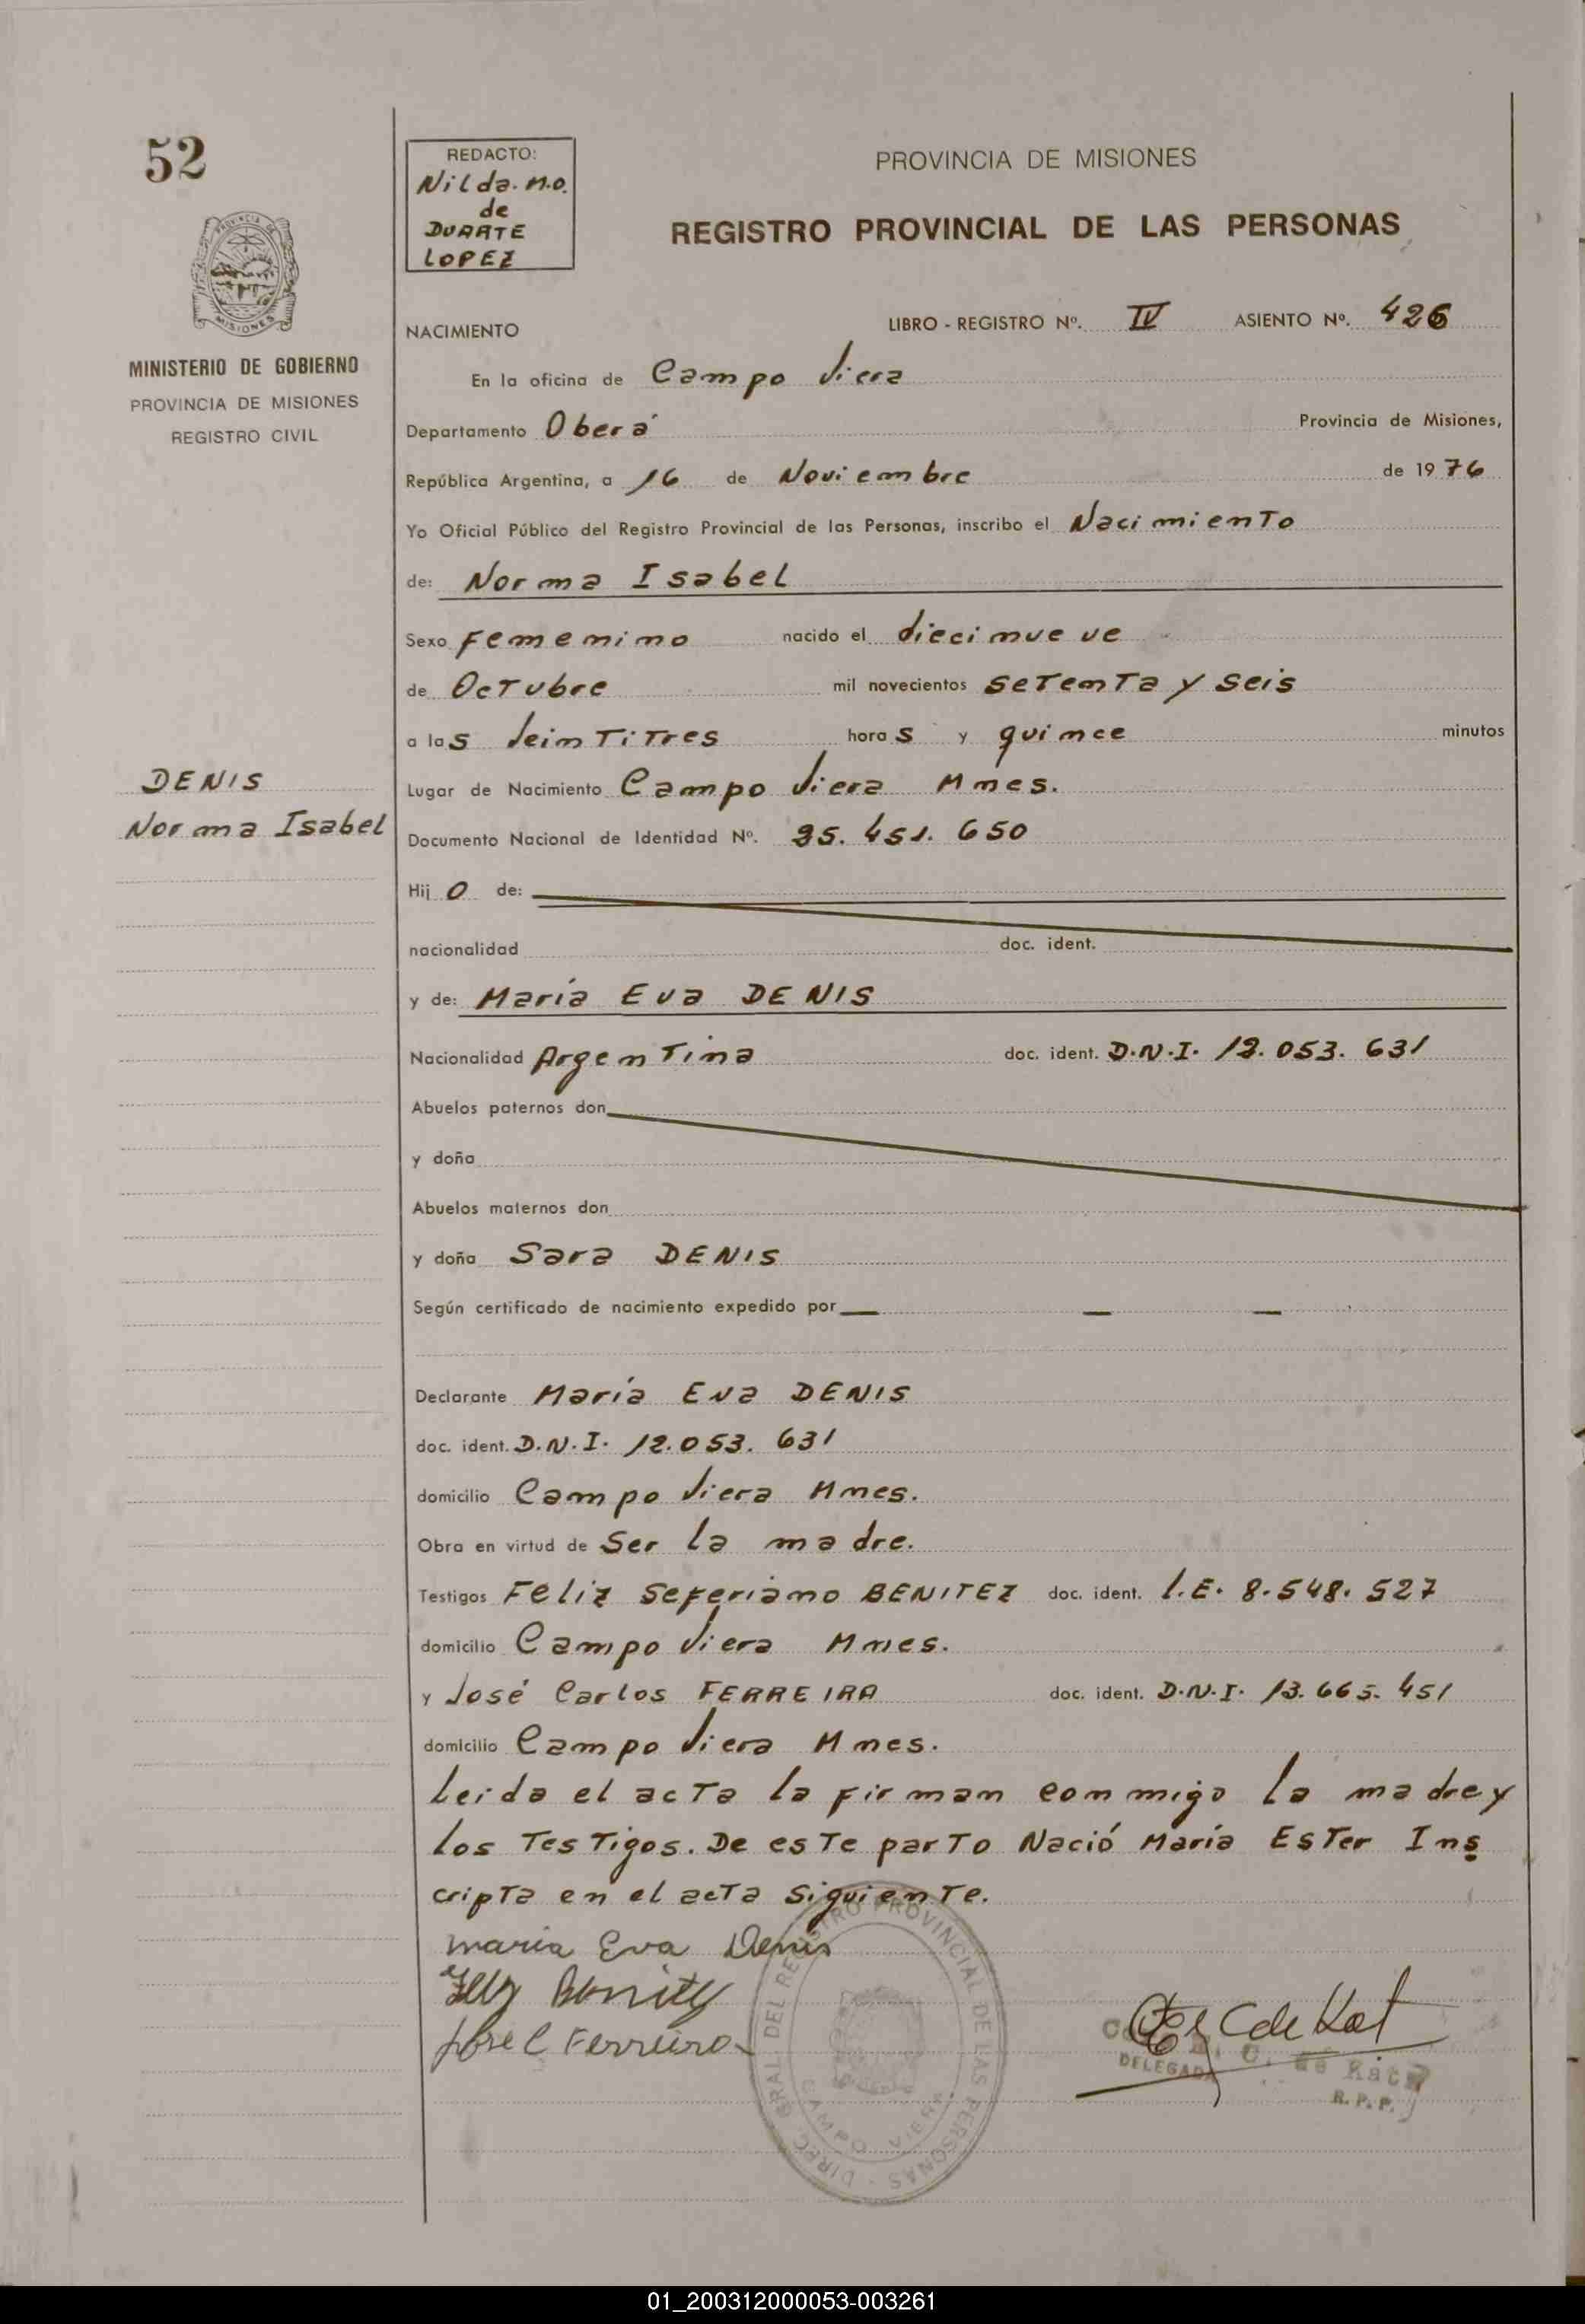 52
PROVINCIA DE
MISIONES
MINISTERIO DE GOBIERNO
PROVINCIA DE MISIONES
REGISTRO CIVIL
DENIS
Norma Isabel
REDACTO:
Nilda. M.O.
de
DUARTE
LOPEZ
PROVINCIA DE MISIONES
REGISTRO PROVINCIAL DE LAS PERSONAS
NACIMIENTO LIBRO - REGISTRO Nº. IV ASIENTO Nº. 426
En la oficina de Campo Viera
Departamento Oberá Provincia de Misiones,
República Argentina, a 16 de Noviembre de 1976
Yo Oficial Público del Registro Provincial de las Personas, inscribo el Nacimiento
de: Norma Isabel
Sexo Femenino nacido el diecinueve
de Octubre mil novecientos setenta y seis
a las Veintitres horas y quince minutos
Lugar de Nacimiento Campo Viera Mnes.
Documento Nacional de Identidad Nº. 25.451.650
Hij o de:
nacionalidad doc. ident.
y de: María Eva DENIS
Nacionalidad Argentina doc. ident. D.N.I. 12.053.631
Abuelos paternos don
y doña
Abuelos maternos don
y doña Sara DENIS
Según certificado de nacimiento expedido por — — —
Declarante María Eva DENIS
doc. ident. D.N.I. 12.053.631
domicilio Campo Viera Mnes.
Obra en virtud de Ser la madre.
Testigos Feliz Seferiano BENITEZ doc. ident. L.E. 8.548.527
domicilio Campo Viera Mnes.
y José Carlos FERREIRA doc. ident. D.N.I. 13.665.451
domicilio Campo Viera Mnes.
Leida el acta la firman conmigo la madre y
los Testigos. De este parto Nació María Ester Ins
cripta en el acta siguiente.
maria Eva Denis
José C Ferreira
DIREC. GRAL. DEL REGISTRO PROVINCIAL DE LAS PERSONAS
CAMPO VIERA
C. de Katz
DELEGADA
R.P.P.
01_200312000053-003261